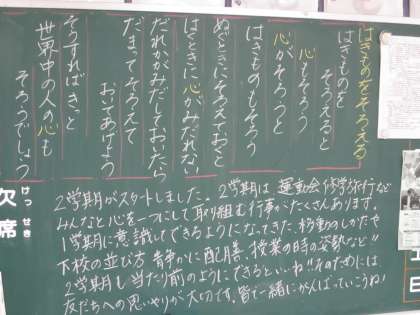 はきものをそろえる
はきものを
そろえると
心もそろう
心がそろうと
はきものもそろう
ぬぐときにそろえておくと
はくときに心がみだれない
だれかがみだしておいたら
だまってそろえて
おいてあげよう
そうすればきっと
世界中の人の心も
そろうでしょう
2学期がスタートしました。2学期は 運動会 修学旅行など
みんなと心を一つにして取り組む行事がたくさんあります。
1学期に意識してできるようになってきた、移動のしかたや
下校の並び方 静かに配膳、授業の時の姿勢など!!
2学期も当たり前のようにできるといいね!!そのためには
友だちへの思いやりが大切です。皆で一緒にがんばっていこうね!
欠席
けっせき
日